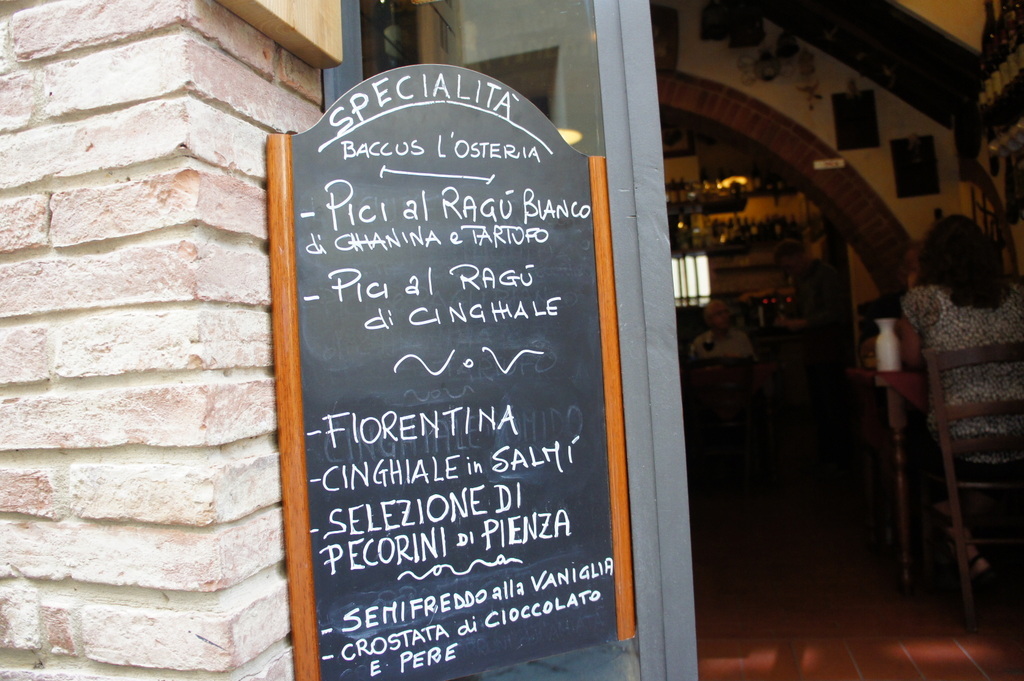 SPECIALITÀ
BACCUS L'OSTERIA
- Pici al RAGÚ BIANCO
di CHIANINA e TARTUFO
- Pici al RAGÚ
di CINGHIALE
- FIORENTINA
- CINGHIALE in SALMÍ
- SELEZIONE DI
PECORINI DI PIENZA
- SEMIFREDDO alla VANIGLIA
- CROSTATA di CIOCCOLATO
E PERE